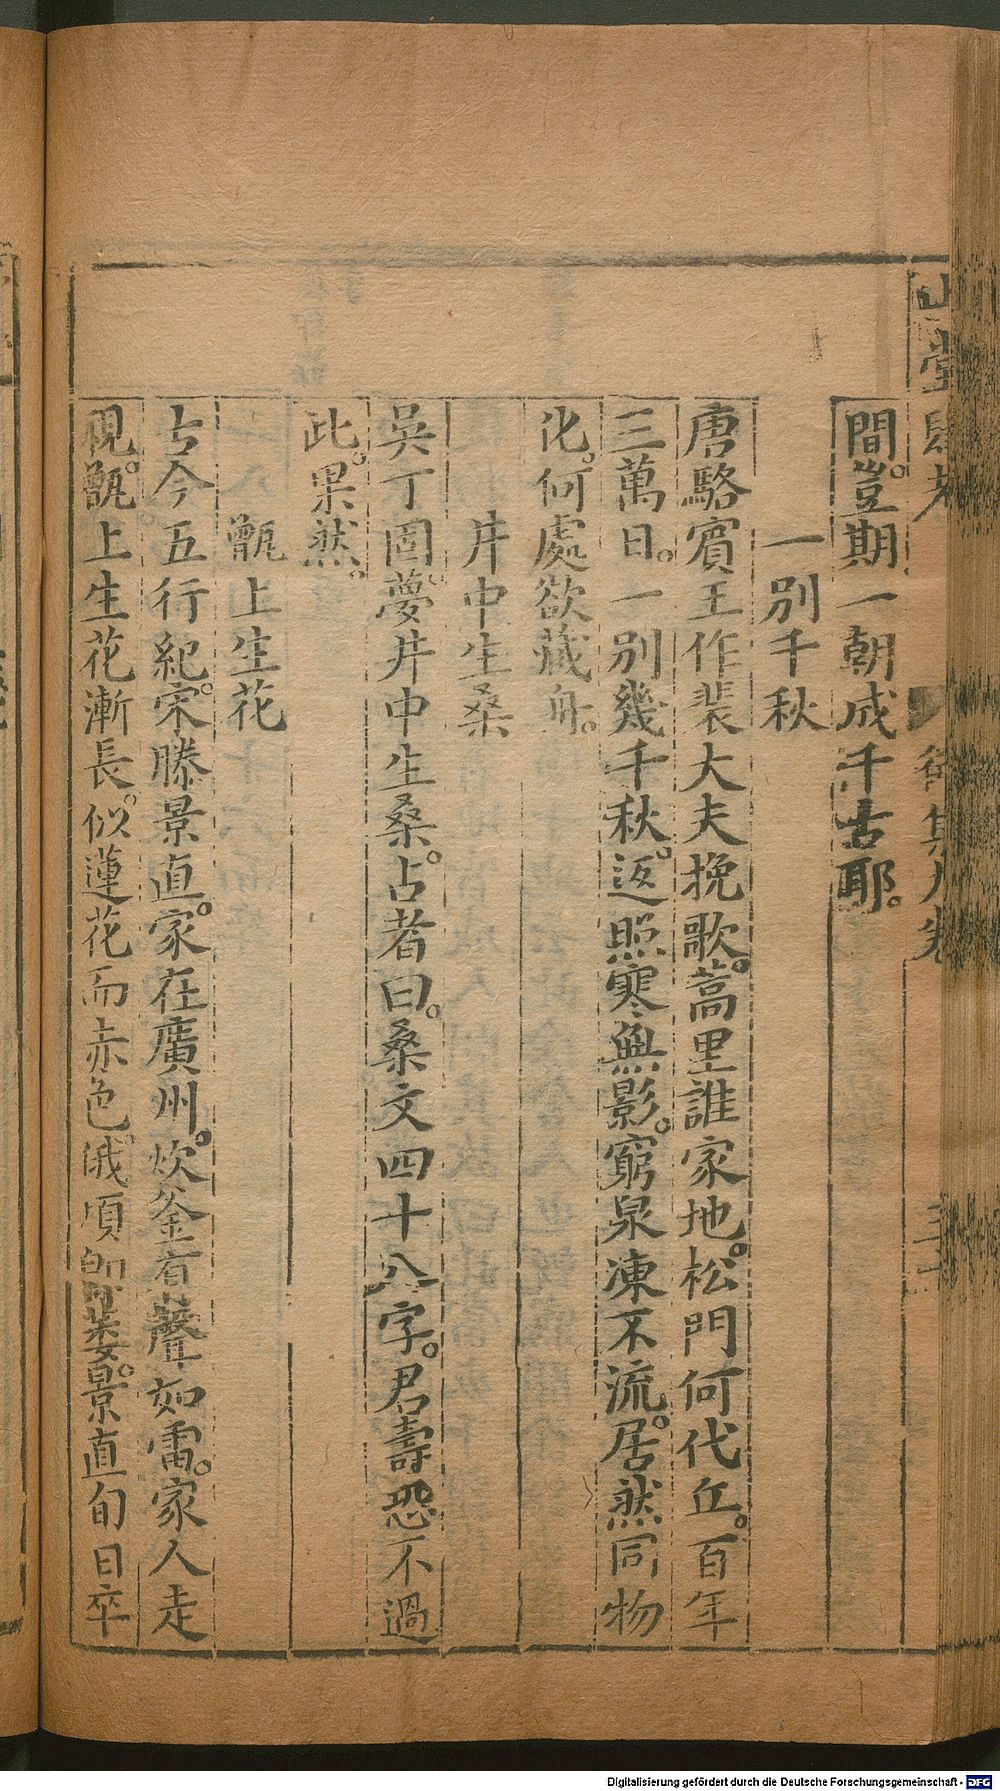 山堂肆考 𧘂集八卷
間。豈期一朝成千古耶。
一別千秋
唐駱賓王作裴大夫挽歌。蒿里誰家地。松門何代丘。百年
三萬日。一別幾千秋。返照寒無影。窮泉凍不流。居然同物
化。何處欲藏舟。
井中生桑
吳丁固夢井中生桑。占者曰。桑文四十八字。君壽恐不過
此。果然。
甑上生花
古今五行紀。宋滕景直。家在廣州。炊釜有聲如雷。家人走
視。甑上生花漸長。似蓮花而赤色。俄頃卽萎。景直旬日卒
Digitalisierung gefördert durch die Deutsche Forschungsgemeinschaft - DFG